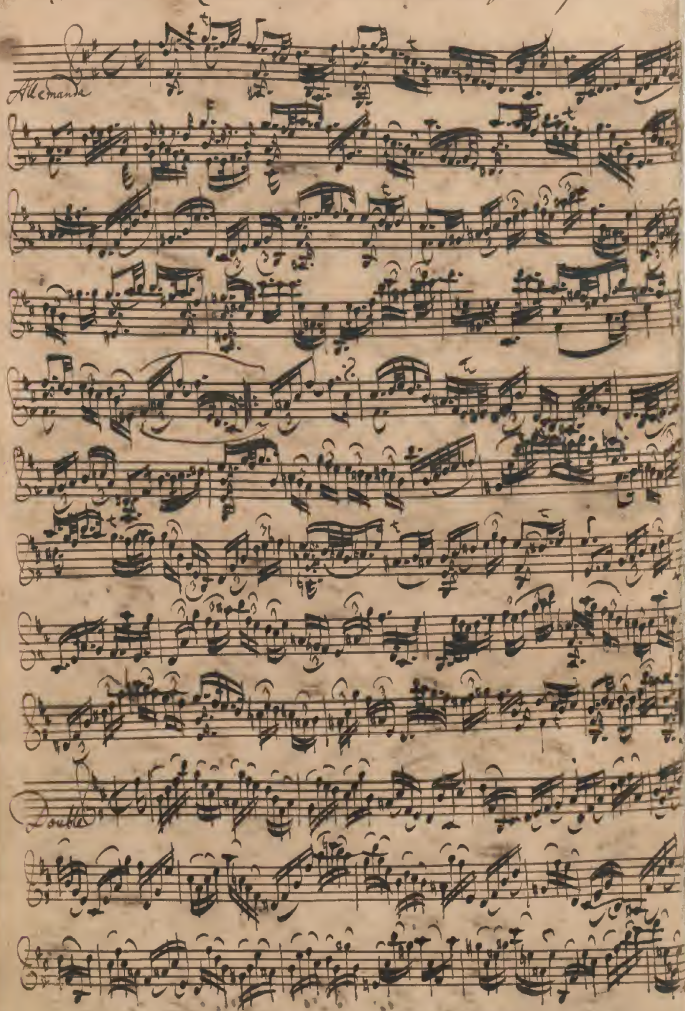 Allemanda
Double